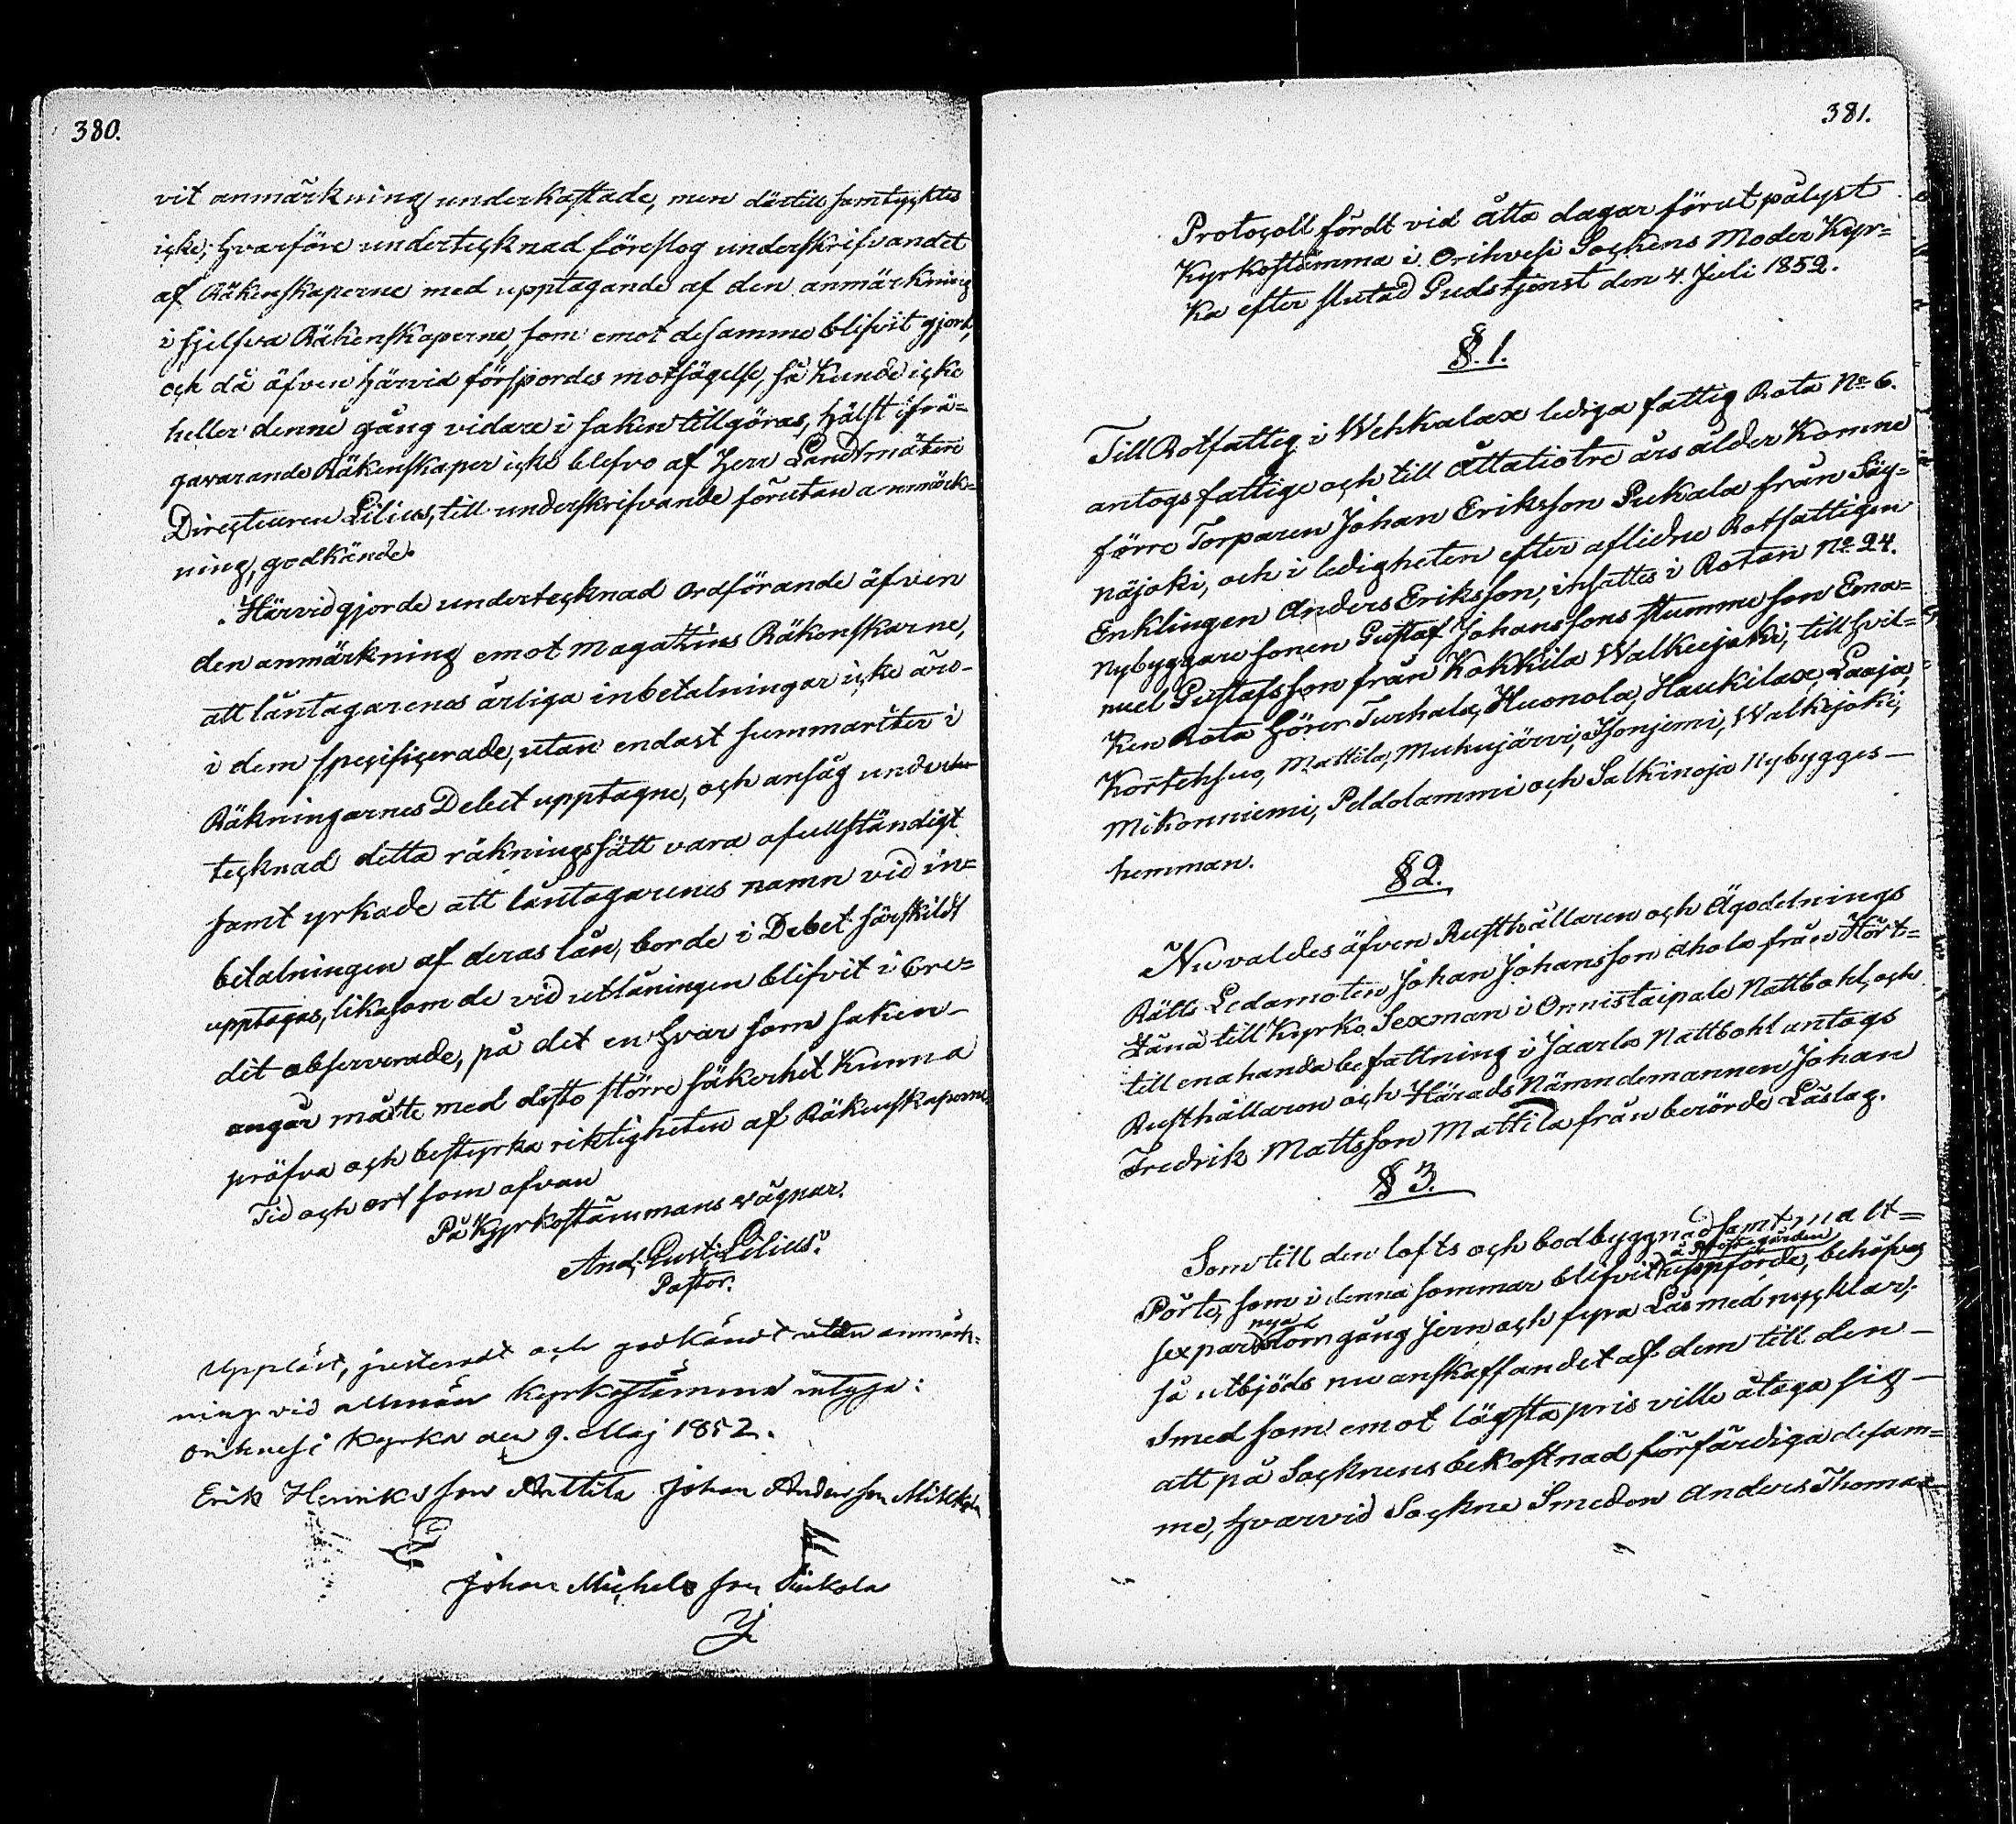 380.
vit anmärkning underkastade, men därtill samtycktes
icke; hvarföre undertecknad föreslog underskrifvandet
af Räkenskaperne med upptagande af den anmärkning
i sjelfva Räkenskaperne, som emot desamme blifvit gjord,
och då äfven härvid förspordes motsägelse, så kunde icke
heller denne gång vidare i saken tillgöras, hälst ifrå-
gavarande Räkenskaper icke blefvo af Herr Landtmäteri
Directeuren Lilius, till underskrifvande förutan anmärk-
ning, godkände.
Härvid gjorde undertecknad Ordförande äfven
den anmärkning emot Magatzins Räkenskarne,
att låntagarenes årliga inbetalningar icke äro
i dem specificerade, utan endast summariter i
Räkningarnes Debet upptagne, och ansåg under
tecknad detta räkningssätt vara ofullständigt
samt yrkade att låntagarenes namn vid in-
betalningen af deras lån, borde i Debet särskildt
upptagas, likasom de vid utlåningen blifvit i Cre-
dit observerade, på det en hvar som saken
angår måtte med desto större säkerhet kunna
pröfva och bestyrka riktigheten af Räkenskaperne.
Tid och ort som ofvan
På Kyrkostämmans vägnar.
And. Gust. Lilius.
Pastor.
Uppläst, justeradt och godkändt utan anmärk-
ning vid allmän Kyrkostämma intyga:
Orihvesi Kyrka den 9. Maj 1852.
Erik Henriksson Anttila Johan Andersson Mikkola
Johan Michelsson
381.
Protocoll fördt vid åtta dagar förut pålyst
Kyrkostämma i Orihvesi Sockens Moder Kyr-
ka efter slutad Gudstjenst den 4. Juli 1852.
§. 1.
Till Rotfattig i Wehkalax lediga fattig Rota No 6.
antogs fattige och till Åttatiotre års ålder komne
förre Torparen Johan Eriksson Pukala från Säy-
näjoki, och i ledigheten efter aflidne Rotfattigen
Enklingen Anders Eriksson, insattes i Rotan No 24.
Nybyggare sonen Gustaf Johanssons stumme son Ema-
nuel Gustafsson från Kokkila Walkeejoki, till hvil-
ken Rota hörer Turhala, Huonola, Haukilax, Laaja,
Kortehsuo, Mattila, Muhujärvi, Isonjemi, Walkejoki,
Mikonniemi, Peldolammi och Salkinoja Nybygges
hemman.
§ 2.
Nu valdes äfven Rusthållaren och Ägodelnings
Rätts Ledamoten Johan Johansson Ahola från Hört-
zänä till Kyrko Sexman i Onnistaipale Nattbohl, och
till enahanda befattning i Jaarla Nattbohl antogs
Rusthållaren och Härads Nämndemannen Johan
Fredrik Mattsson Mattila från berörde Låslag.
§ 3.
Som till den lofts och bodbyggnad, samt malt-
Pörte, som i denna sommar blifvit å Prostegården uppförde, behöfves
sex par nya dörrgång jern och fyra Lås med nycklar;
så utbjöds nu anskaffandet af dem till den
Smed som emot lägsta pris ville åtaga sig
att på Socknens bekostnad förfärdiga desam-
me, hvarvid Sockne Smeden Anders Thomas